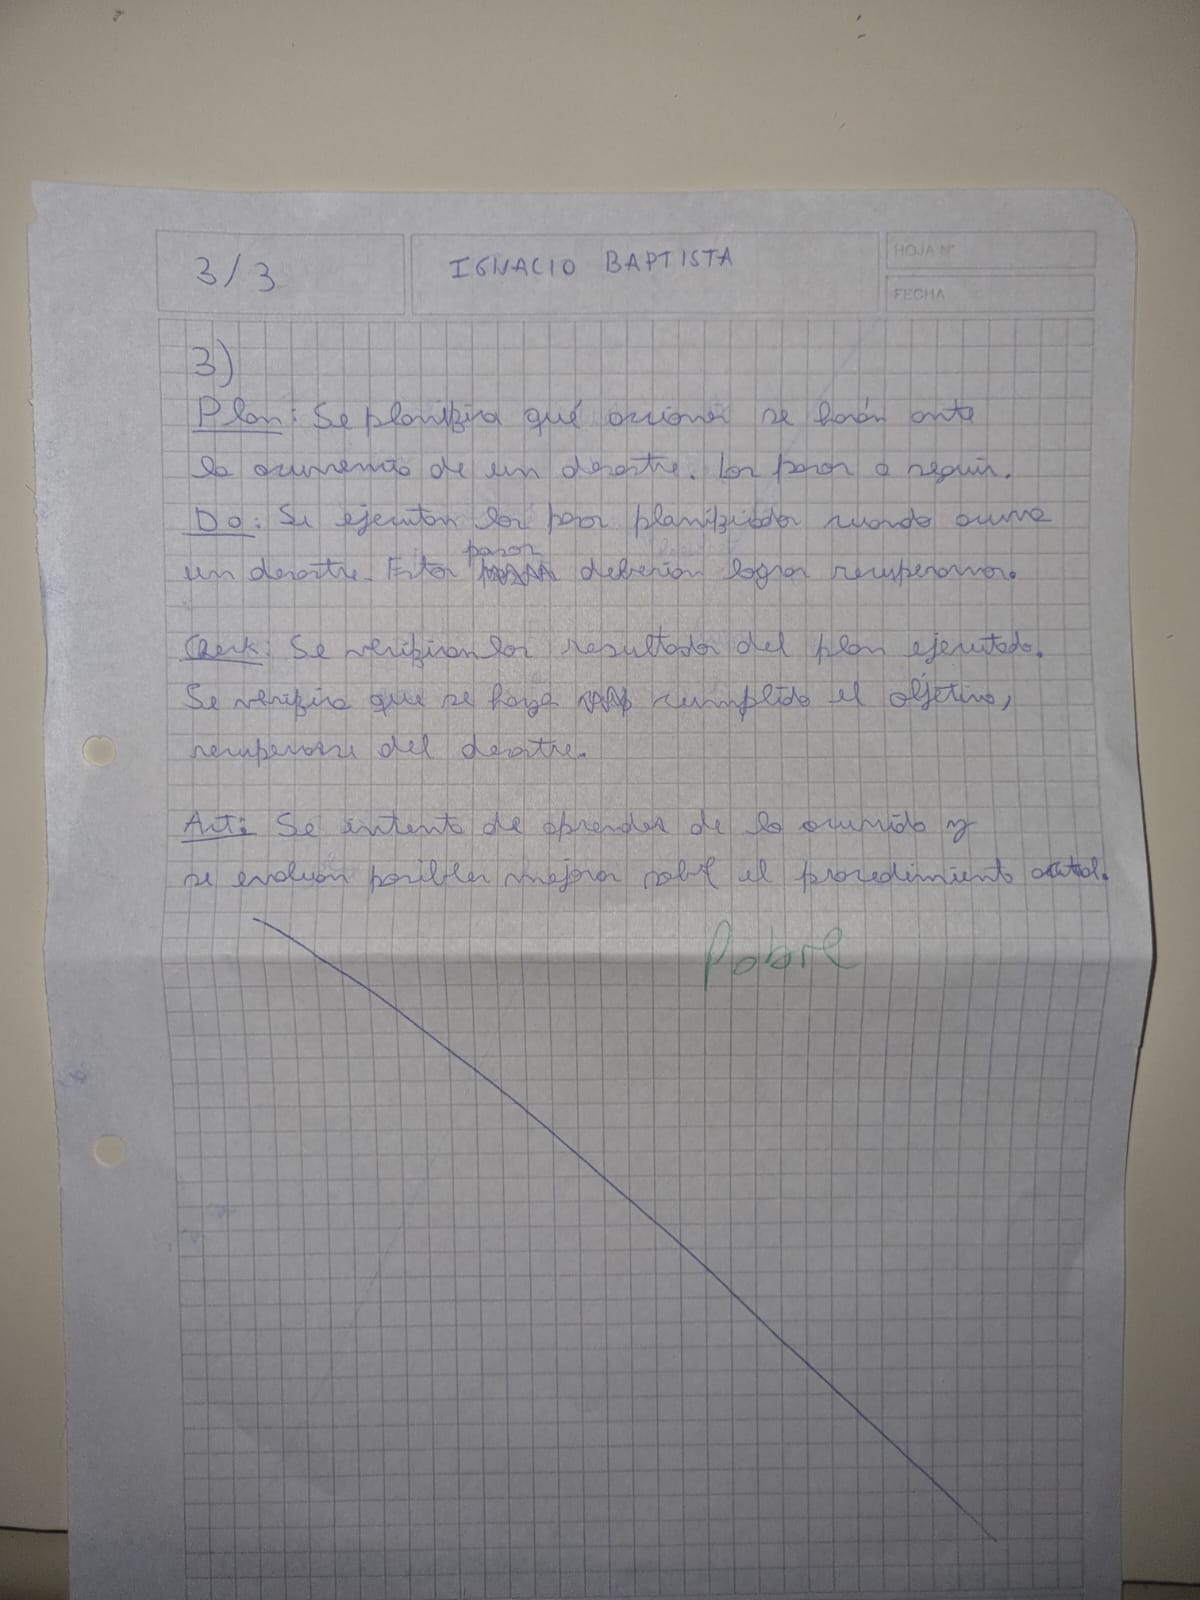 3/3
IGNACIO BAPTISTA
HOJA N°
FECHA
3)
Plan: Se planifica qué acciones se harán ante
la ocurrencia de un desastre. Los pasos a seguir.
Do: Se ejecutan los pasos planificados cuando ocurre
un desastre. Estos pasos deberían lograr recuperarnos.
Check: Se verifican los resultados del plan ejecutado.
Se verifica que se haya cumplido el objetivo,
recuperarse del desastre.
Act: Se intenta de aprender de lo ocurrido y
se evalúan posibles mejoras sobre el procedimiento actual.
Pobre